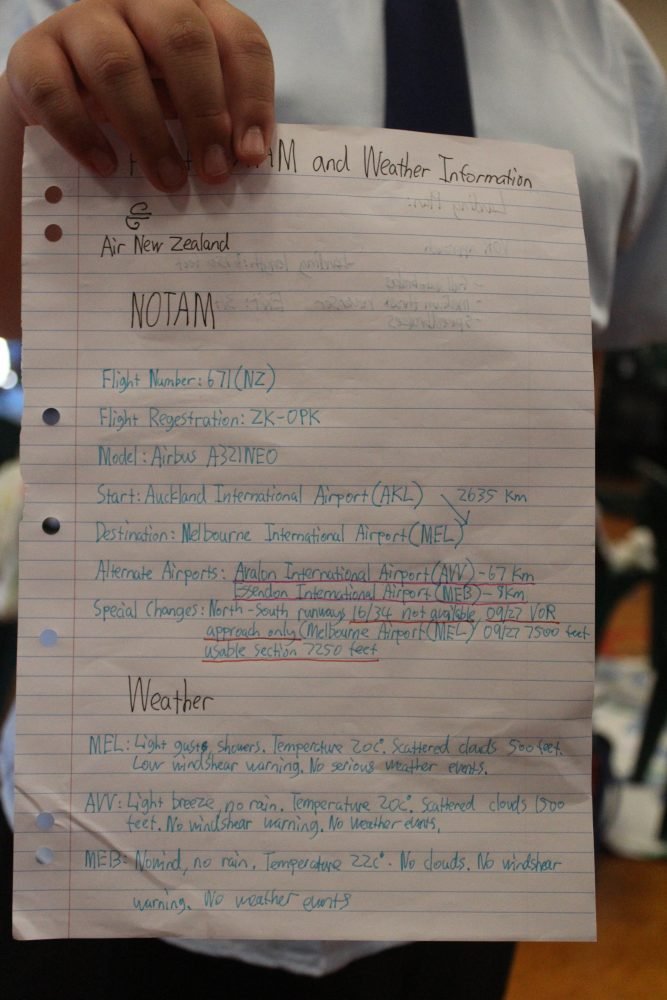 and Weather Information
Air New Zealand
NOTAM
Flight Number: 671(NZ)
Flight Regestration: ZK-OPK
Model: Airbus A321NEO
Start: Auckland International Airport(AKL) 2635 Km
Destination: Melbourne International Airport(MEL)
Alternate Airports: Avalon International Airport(AVV)-67 Km
Essendon International Airport(MEB)-9Km
Special Changes: North-South runways 16/34 not available, 09/27 VOR
approach only (Melbourne Airport(MEL) 09/27 7500 feet
usable section 7250 feet
Weather
MEL: Light gusts, showers. Temperature 20c°. Scattered clouds 500 feet.
Low windshear warning. No serious weather events.
AVV: Light breeze, no rain. Temperature 20c°. Scattered clouds 1500
feet. No windshear warning. No weather events.
MEB: No wind, no rain. Temperature 22c°. No clouds. No windshear
warning. No weather events